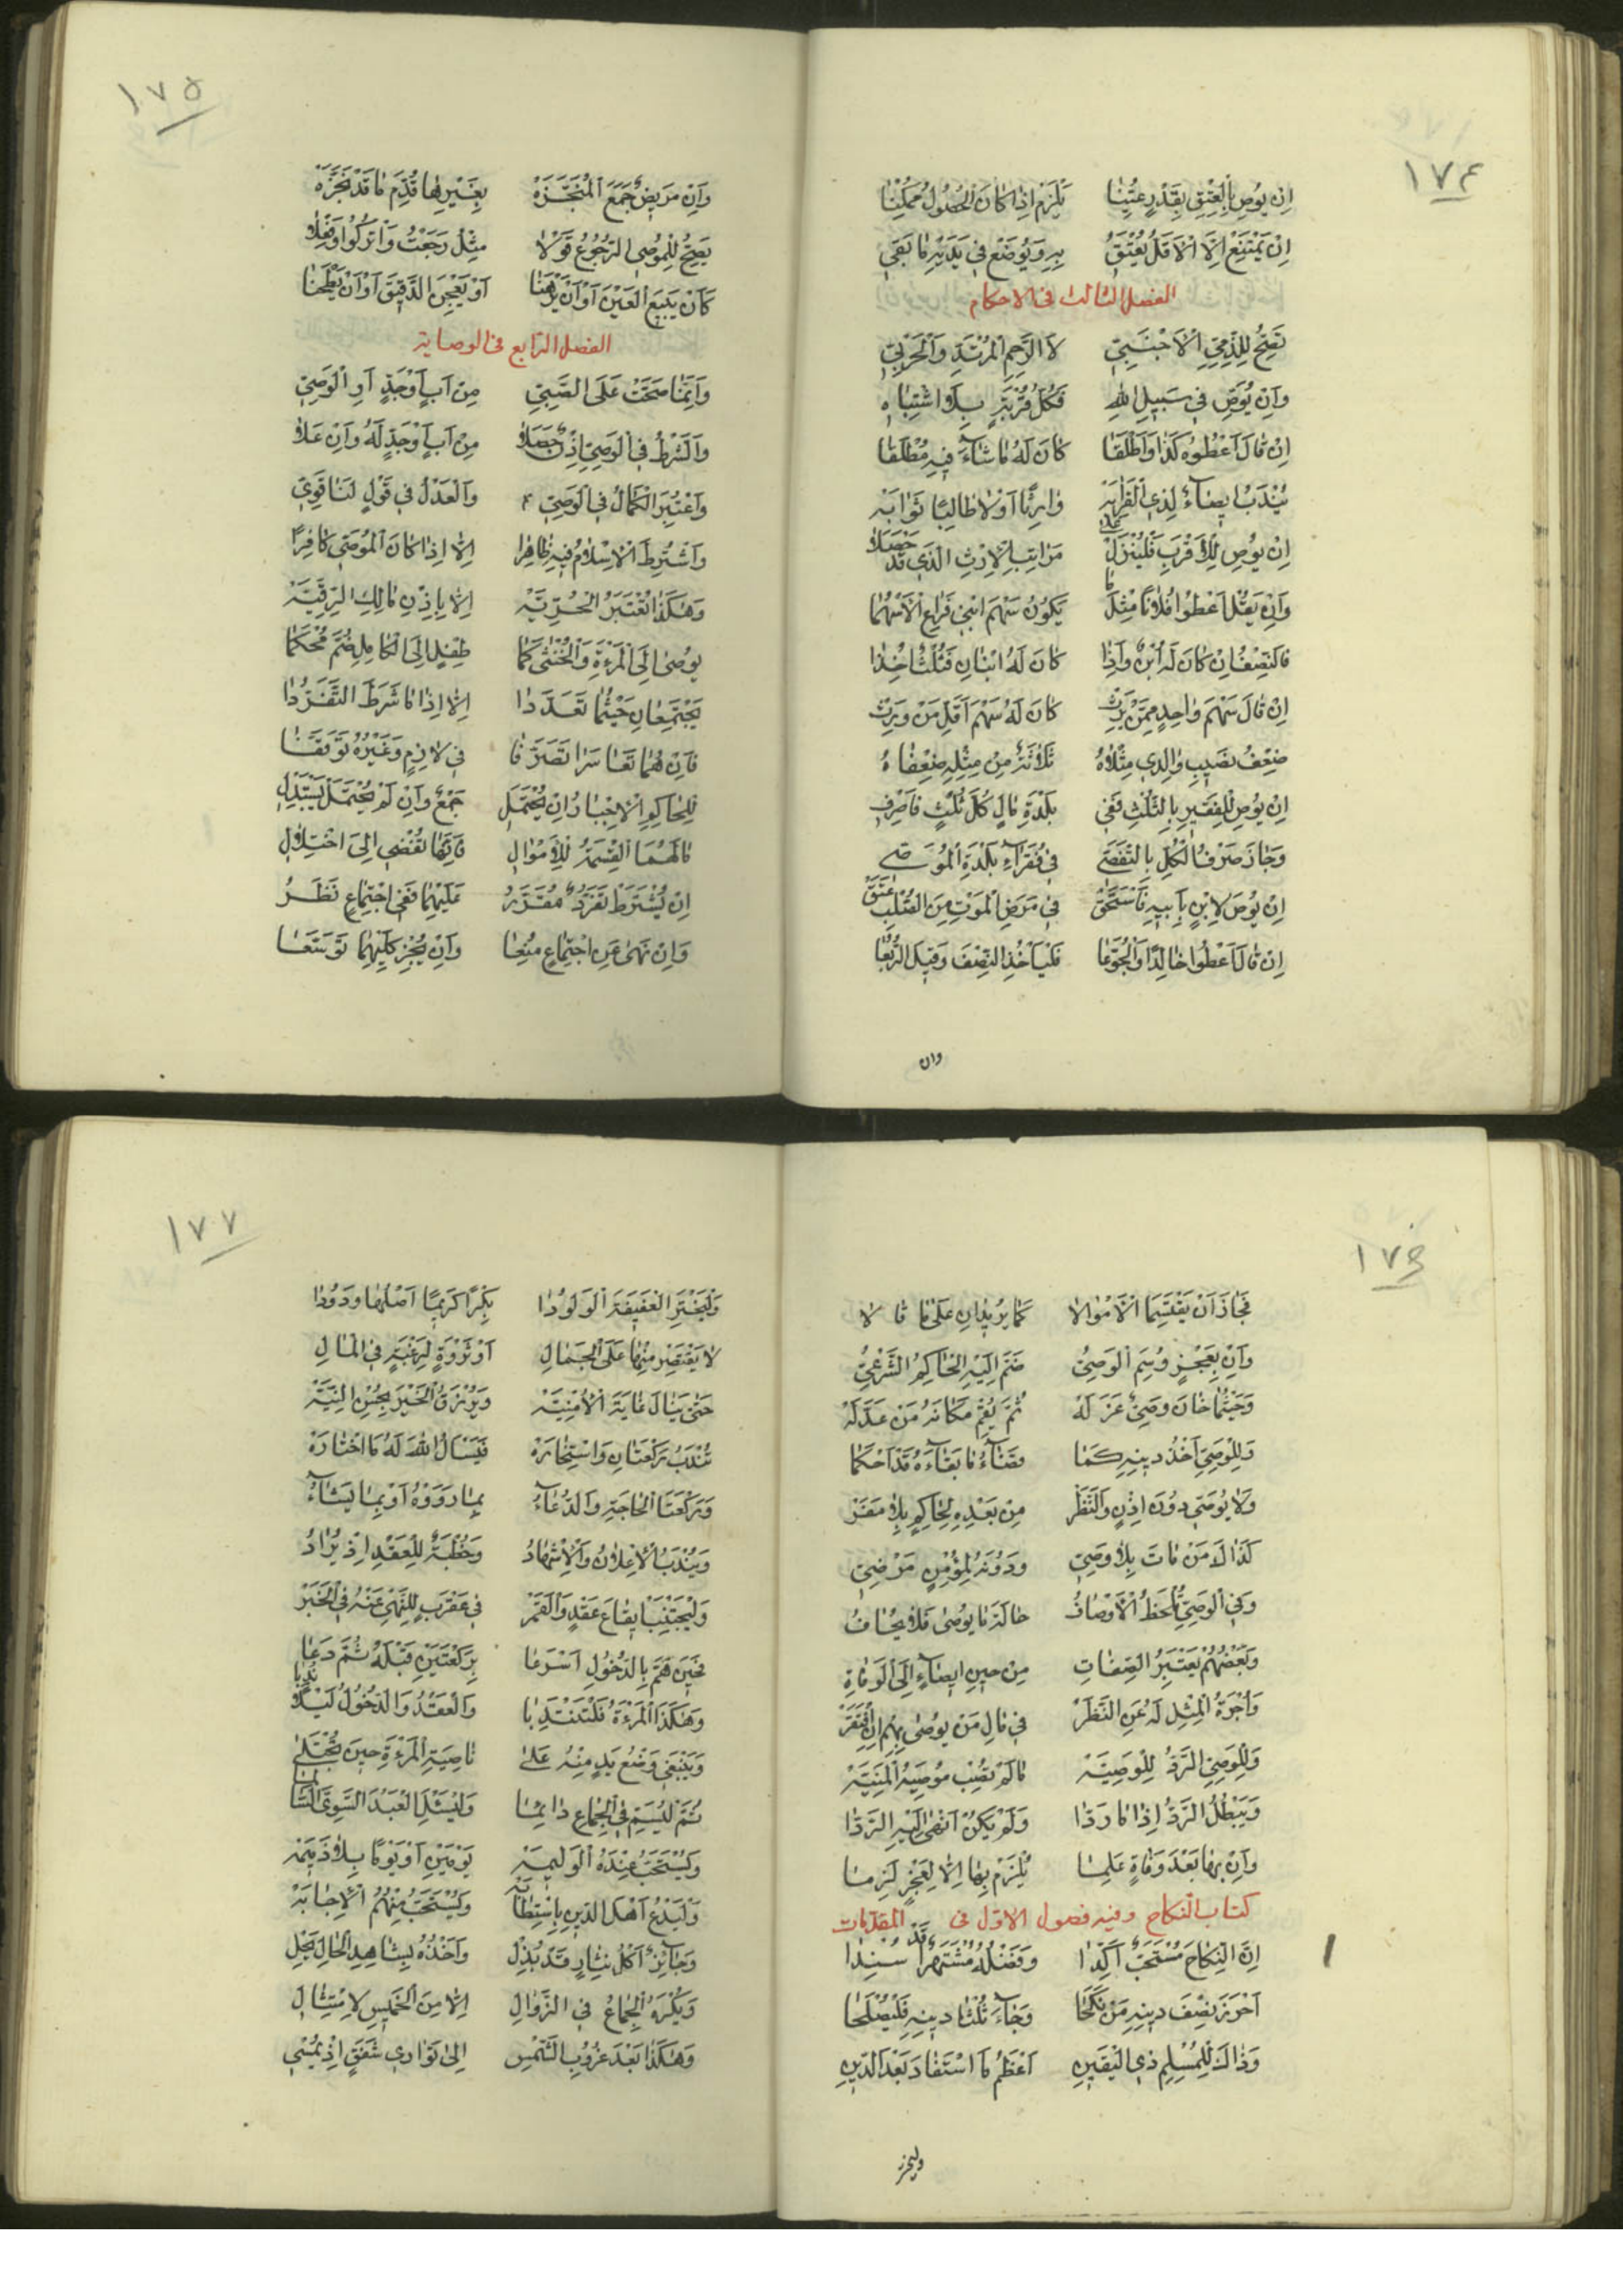 ١٧٤
اِنْ يُوصِ بِالْعِتْقِ بِقَدْرٍ عُيِّنَا يَلْزَمْ اِذَا كَانَ الْحُصُولُ مُمْكِنَا
اِنْ يَمْتَنِعْ اِلَّا الْاَقَلُّ يُعْتَقُ بِهِ وَيُوضَعْ فِي يَدَيْهِ مَا بَقِي
الفصل الثالث فى الاحكام
تَصِحُّ لِلذِّمِّيِّ الْاَجْنَبِيِّ لَا الرَّحِمِ الْمُرْتَدِّ وَالْحَرْبِيِّ
وَاِنْ يُوَصِّ فِي سَبِيلِ اللهِ فَكُلُّ قُرْبَةٍ بِلَا اشْتِبَاهِ
اِنْ قَالَ اَعْطُوهُ كَذَا وَاَطْلَقَا كَانَ لَهُ مَا شَاءَ فِيهِ مُطْلَقَا
يُنْدَبُ اِيصَاءٌ لِذِي الْقَرَابَهْ وَارِثًا اَوْ لَا طَالِبًا ثَوَابَهْ
اِنْ يُوصِ لِلْاَقْرَبِ فَلْيُنْزَلْ عَلَى مَرَاتِبِ الْاِرْثِ الَّذِي قَدْ حَصَلَا
وَاِنْ يَقُلْ اَعْطُوا فُلَانًا مِثْلَ مَا يَكُونُ سَهْمَ ابْنِي فَرَاعِ الْاَسْهُمَا
فَالنِّصْفُ اِنْ كَانَ لَهُ ابْنٌ وَاِذَا كَانَ لَهُ ابْنَانِ فَثُلْثًا خُذَا
اِنْ قَالَ سَهْمَ وَاحِدٍ مِمَّنْ يَرِثْ كَانَ لَهُ سَهْمُ اَقَلِّ مَنْ وَرِثْ
ضِعْفُ نَصِيبِ وَلَدِي مِثْلَاهُ ثَلَاثَةٌ مِنْ مِثْلِهِ ضِعْفَاهُ
اِنْ يُوصِ لِلْفَقِيرِ بِالثُّلْثِ فَفِي بَلْدَةِ مَالٍ كُلَّ ثُلْثٍ فَاصْرِفِ
وَجَازَ صَرْفُ الْكُلِّ بِالتَّقَصِّي فِي فُقَرَاءِ بَلْدَةِ الْمُوَصِّي
اِنْ يُوصَ لِابْنٍ بِاَبِيهِ فَاسْتَحَقَّ فِي مَرَضِ الْمَوْتِ مِنَ الصُّلْبِ عَتَقَ
اِنْ قَالَ اَعْطُوا خَالِدًا وَالْجُوَّعَا فَلْيَاْخُذِ النِّصْفَ وَقِيلَ الرُّبُعَا
وان
١٧٥
وَاِنْ مَرِيضٌ جَمَعَ الْمُنَجَّزَهْ بِغَيْرِهَا قُدِّمَ مَا قَدْ نَجَّزَهْ
يَصِحُّ لِلْمُوصِي الرُّجُوعُ قَوْلَا مِثْلُ رَجَعْتُ وَاتْرُكُوا وَفِعْلَا
كَاَنْ يَبِيعَ الْعَيْنَ اَوْ اَنْ يَرْهَنَا اَوْ يَعْجِنَ الدَّقِيقَ اَوْ اَنْ يَطْحَنَا
الفصل الرابع فى الوصاية
وَاِنَّمَا صَحَّتْ عَلَى الصَّبِيِّ مِنْ اَبٍ اَوْ جَدٍّ اَوِ الْوَصِيِّ
وَالشَّرْطُ فِي الْوَصِيِّ اِذْنٌ حَصَلَا مِنْ اَبٍ اَوْ جَدٍّ لَهُ وَاِنْ عَلَا
وَاعْتُبِرَ الْكَمَالُ فِي الْوَصِيِّ وَالْعَدْلُ فِي قَوْلٍ لَنَا قَوِيِّ
وَاشْتُرِطَ الْاِسْلَامُ فِيهِ ظَاهِرَا اِلَّا اِذَا كَانَ الْمُوصِي كَافِرًا
وَهٰكَذَا تُعْتَبَرُ الْحُرِّيَّهْ اِلَّا بِاِذْنِ مَالِكِ الرِّقِّيَّهْ
يُوصٰى اِلَى الْمَرْءَةِ وَالْخُنْثٰى كَمَا طِفْلٍ اِلَى الْكَامِلِ ضُمَّ مُحْكَمَا
يَجْتَمِعَانِ حَيْثُمَا تَعَدَّدَا اِلَّا اِذَا مَا شَرَطَ التَّفَرُّدَا
فَاِنْ هُمَا تَعَاسَرَا تَصَرَّفَا فِي لَازِمٍ وَغَيْرُهُ تَوَقَّفَا
لِلْحَاكِمِ الْاِجْبَارُ اِنْ يُحْتَمَلِ جَمْعٌ وَاِنْ لَمْ يُحْتَمَلْ يَسْتَبْدِلِ
مَا لَهُمَا الْقِسْمَةُ لِلْاَمْوَالِ فَاِنَّهَا تُفْضِي اِلَى اخْتِلَالِ
اِنْ يُشْتَرَطْ تَفَرُّدٌ مُقَرَّرُ عَلَيْهِمَا فَفِي اجْتِمَاعٍ نَظَرُ
وَاِنْ نَهٰى عَنِ اجْتِمَاعٍ مُنِعَا وَاِنْ يُجِزْ كِلَيْهِمَا تَوَسَّعَا
١٧٦
فَجَازَ اَنْ يَقْتَسِمَا الْاَمْوَالَا كَمَا يُرِيدَانِ عَلَى مَا قَالَا
وَاِنْ بِعَجْزٍ وُسِمَ الْوَصِيُّ ضَمَّ اِلَيْهِ الْحَاكِمُ الشَّرْعِيُّ
وَحَيْثُمَا خَانَ وَصِيٌّ عَزَلَهْ ثُمَّ يُقِمْ مَكَانَهُ مَنْ عَدَّلَهْ
وَلِلْوَصِيِّ اَخْذُ دَيْنِهِ كَمَا قَضَاءُ مَا بَقَاءَهُ قَدْ اَحْكَمَا
وَلَا يُوَصِّي دُونَ اِذْنٍ وَالنَّظَرْ مِنْ بَعْدِهِ لِحَاكِمٍ بِلَا مَفَرْ
كَذَاكَ مَنْ مَاتَ بِلَا وَصِيِّ وَدُونَهُ لِمُؤْمِنٍ مَرْضِيِّ
وَفِي الْوَصِيِّ تُلْحَظُ الْاَوْصَافُ حَالَةَ مَا يُوصٰى فَلَا يُخَافُ
وَبَعْضُهُمْ يَعْتَبِرُ الصِّفَاتِ مِنْ حِينِ اِيصَاءٍ اِلَى الْوَفَاةِ
وَاُجْرَةُ الْمِثْلِ لَهُ عَنِ النَّظَرْ فِي مَالِ مَنْ يُوصٰى بِهِمْ اِنِ افْتَقَرْ
وَلِلْوَصِيِّ الرَّدُّ لِلْوَصِيَّهْ مَا لَمْ تُصِبْ مُوصِيَهُ الْمَنِيَّهْ
وَيَبْطُلُ الرَّدُّ اِذَا مَا رَدَّا وَلَمْ يَكُنْ اَنْهٰى اِلَيْهِ الرَّدَّا
وَاِنْ بِهَا بَعْدَ وَفَاةٍ عَلِمَا يُلْزَمْ بِهَا اِلَّا لِعَجْزٍ لَزِمَا
كتاب النكاح وفيه فصول الاوّل فى المقدّمات
اِنَّ النِّكَاحَ مُسْتَحَبٌّ اَكِّدَا وَفَضْلُهُ مُشْتَهِرًا قَدْ سُنِدَا
اَحْرَزَ نِصْفَ دِينِهِ مَنْ نَكَحَا وَجَاءَ ثُلْثَا دِينِهِ فَلْيُصْلِحَا
وَذَاكَ لِلْمُسْلِمِ ذِي الْيَقِينِ اَعْظَمُ مَا اسْتَفَادَ بَعْدَ الدِّينِ
١٧٧
وَلْيَخْتَرِ الْعَفِيفَةَ الْوَلُودَا بِكْرًا كَرِيمًا اَصْلُهَا وَدُودَا
لَا يَقْتَصِرْ مِنْهَا عَلَى الْجَمَالِ اَوْ ثَرْوَةٍ لِرَغْبَةٍ فِي الْمَالِ
حَتّٰى يَنَالَ غَايَةَ الْاُمْنِيَّهْ وَيُرْزَقُ الْخَيْرَ بِحُسْنِ النِّيَّهْ
تُنْدَبُ رَكْعَتَانِ وَاسْتِخَارَهْ فَيَسْاَلُ اللهَ لَهُ مَا اخْتَارَهْ
وَرَكْعَتَا الْحَاجَةِ وَالدُّعَاءُ بِمَا رَوَوْهُ اَوْ بِمَا يَشَاءُ
وَيُنْدَبُ الْاِعْلَانُ وَالْاِشْهَادُ وَخُطْبَةٌ لِلْعَقْدِ اِذْ يُرَادُ
وَلْيَجْتَنِبْ اِيقَاعَ عَقْدٍ وَالْقَمَرْ فِي عَقْرَبٍ لِلنَّهْيِ عَنْهُ فِي الْخَبَرْ
فَحِينَ هَمَّ بِالدُّخُولِ اَسْرَعَا بِرَكْعَتَيْنِ قَبْلَهُ ثُمَّ دَعَا
وَهٰكَذَا الْمَرْءَةُ فَلْتَنْتَدِبَا وَالْعَقْدُ وَالدُّخُولُ لَيْلًا نُدِبَا
وَيَنْبَغِي وَضْعُ يَدٍ مِنْهُ عَلَى نَاصِيَةِ الْمَرْءَةِ حِينَ تُجْتَلٰى
ثُمَّ لْيُسَمِّ فِي الْجِمَاعِ دَائِمًا وَلْيَسْئَلِ الْعَبْدُ السَّوِيَّ السَّالِمَا
وَيُسْتَحَبُّ عِنْدَهُ الْوَلِيمَهْ يَوْمَيْنِ اَوْ يَوْمًا بِلَا ذَمِيمَهْ
وَلْيَدْعُ اَهْلَ الدِّينِ بِاسْتِطَابَهْ وَيُسْتَحَبُّ مِنْهُمُ الْاِجَابَهْ
وَجَائِزٌ اَكْلُ نِثَارٍ قَدْ بُذِلْ وَاَخْذُهُ بِشَاهِدِ الْحَالِ يَحِلْ
وَيُكْرَهُ الْجِمَاعُ فِي الزَّوَالِ اِلَّا مِنَ الْخَمِيسِ لِامْتِثَالِ
وَهٰكَذَا بَعْدَ غُرُوبِ الشَّمْسِ اِلٰى تَوَارِي شَفَقٍ اِذْ يُمْسِي